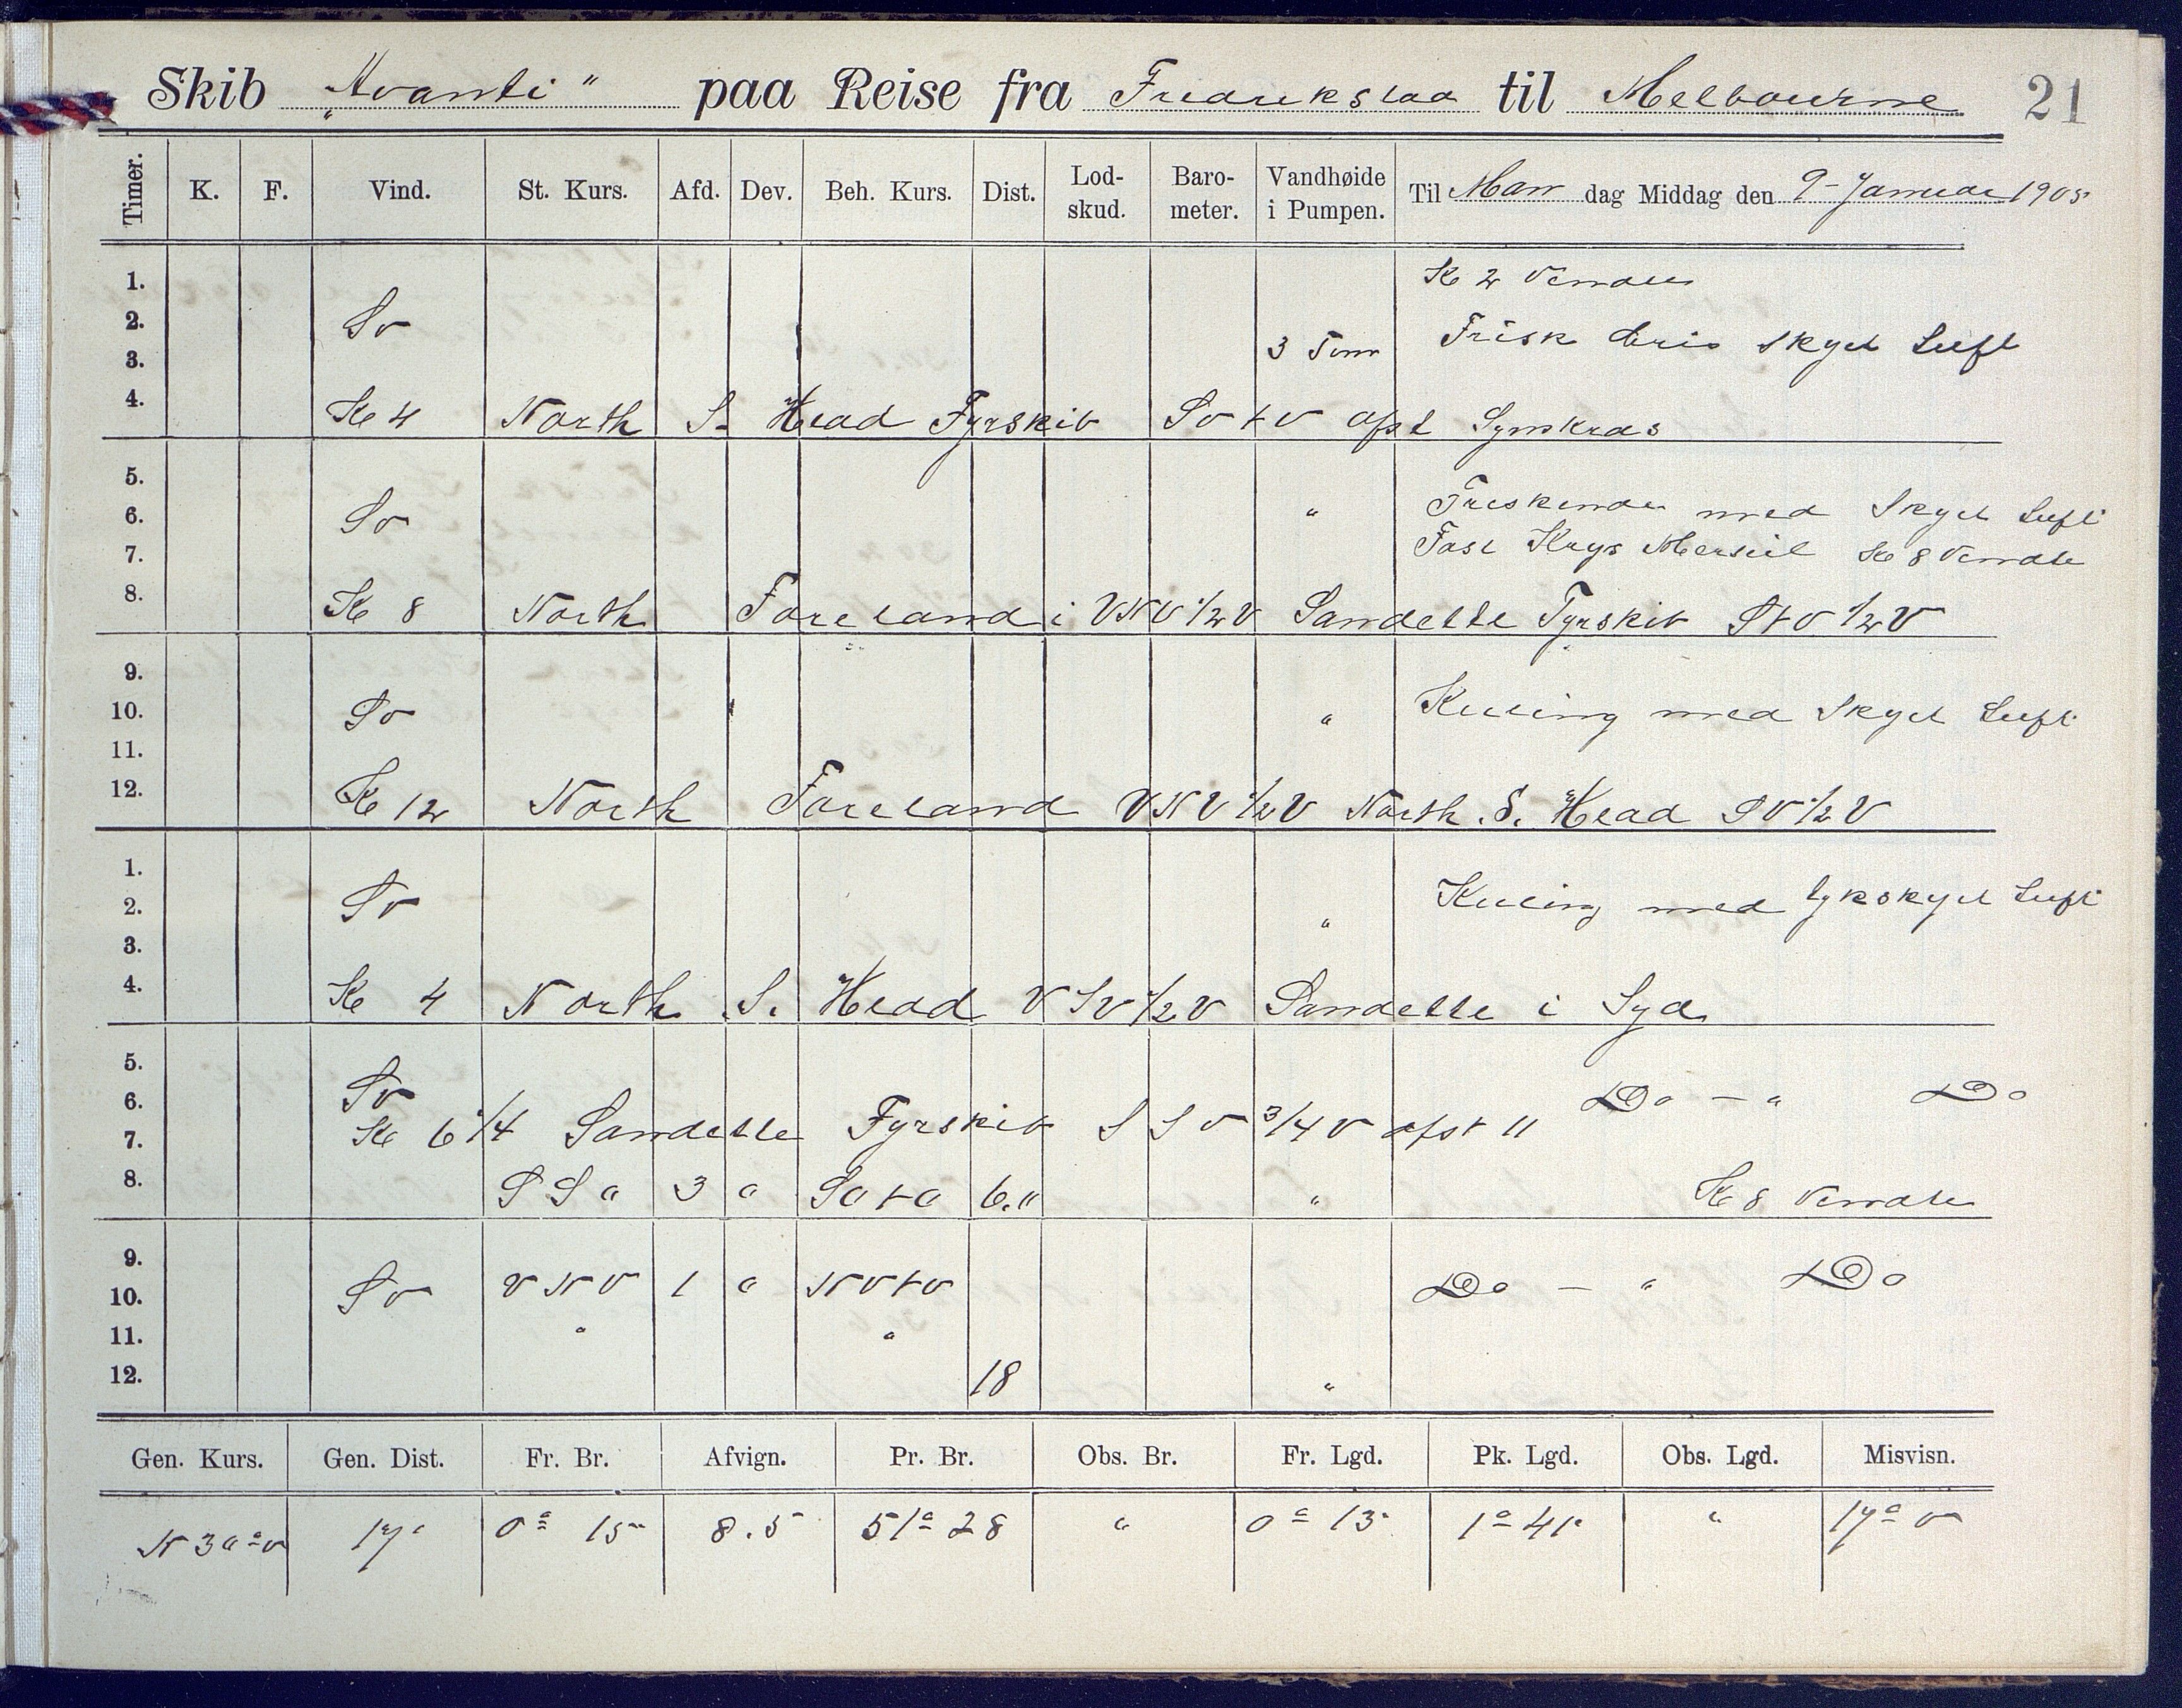 Skib „Avanti" paa Reise fra Fredrikstad til Melbourne 21
Timer. K. F. Vind. St. Kurs. Afd. Dev. Beh. Kurs. Dist. Lod-skud. Baro-meter. Vandhøide i Pumpen. Til Man dag Middag den 9 Januar 1905
1. Kl 2 Vendte
2. Sv
3. 3 Tom Frisk Bris skyet Luft
4. Kl 4 North S. Head Fyrskib Sv t V afst Synskrds
5.
6. Sv " Friskende med Skyet Luft
7. Fast Krys Merseil Kl 8 Vendte
8. Kl 8 North Foreland i VNV 1/2 V Sandette Fyrskib S t V 1/2 V
9.
10. Sv " Kuling med Skyet Luft
11.
12. Kl 12 North Foreland VNV 1/2 V North. S. Head SV 1/2 V
1.
2. Sv " Kuling med tykskyet Luft
3.
4. Kl 4 North S. Head V SV 1/2 V Sandette i Syd
5.
6. Sv Do — " Do
7. Kl 6 1/4 Sandette Fyrskib S S V 3/4 V afst 11
8. S S o 3 " So t o 6." " Kl 8 Vendte
9.
10. Sv V N V 1 " N V t V Do — " Do
11. " "
12. 18 "
Gen. Kurs. Gen. Dist. Fr. Br. Afvign. Pr. Br. Obs. Br. Fr. Lgd. Pk. Lgd. Obs. Lgd. Misvisn.
N 30° V 17' 0° 15 8.5 51° 28 " 0° 13' 1° 41' " 17° V